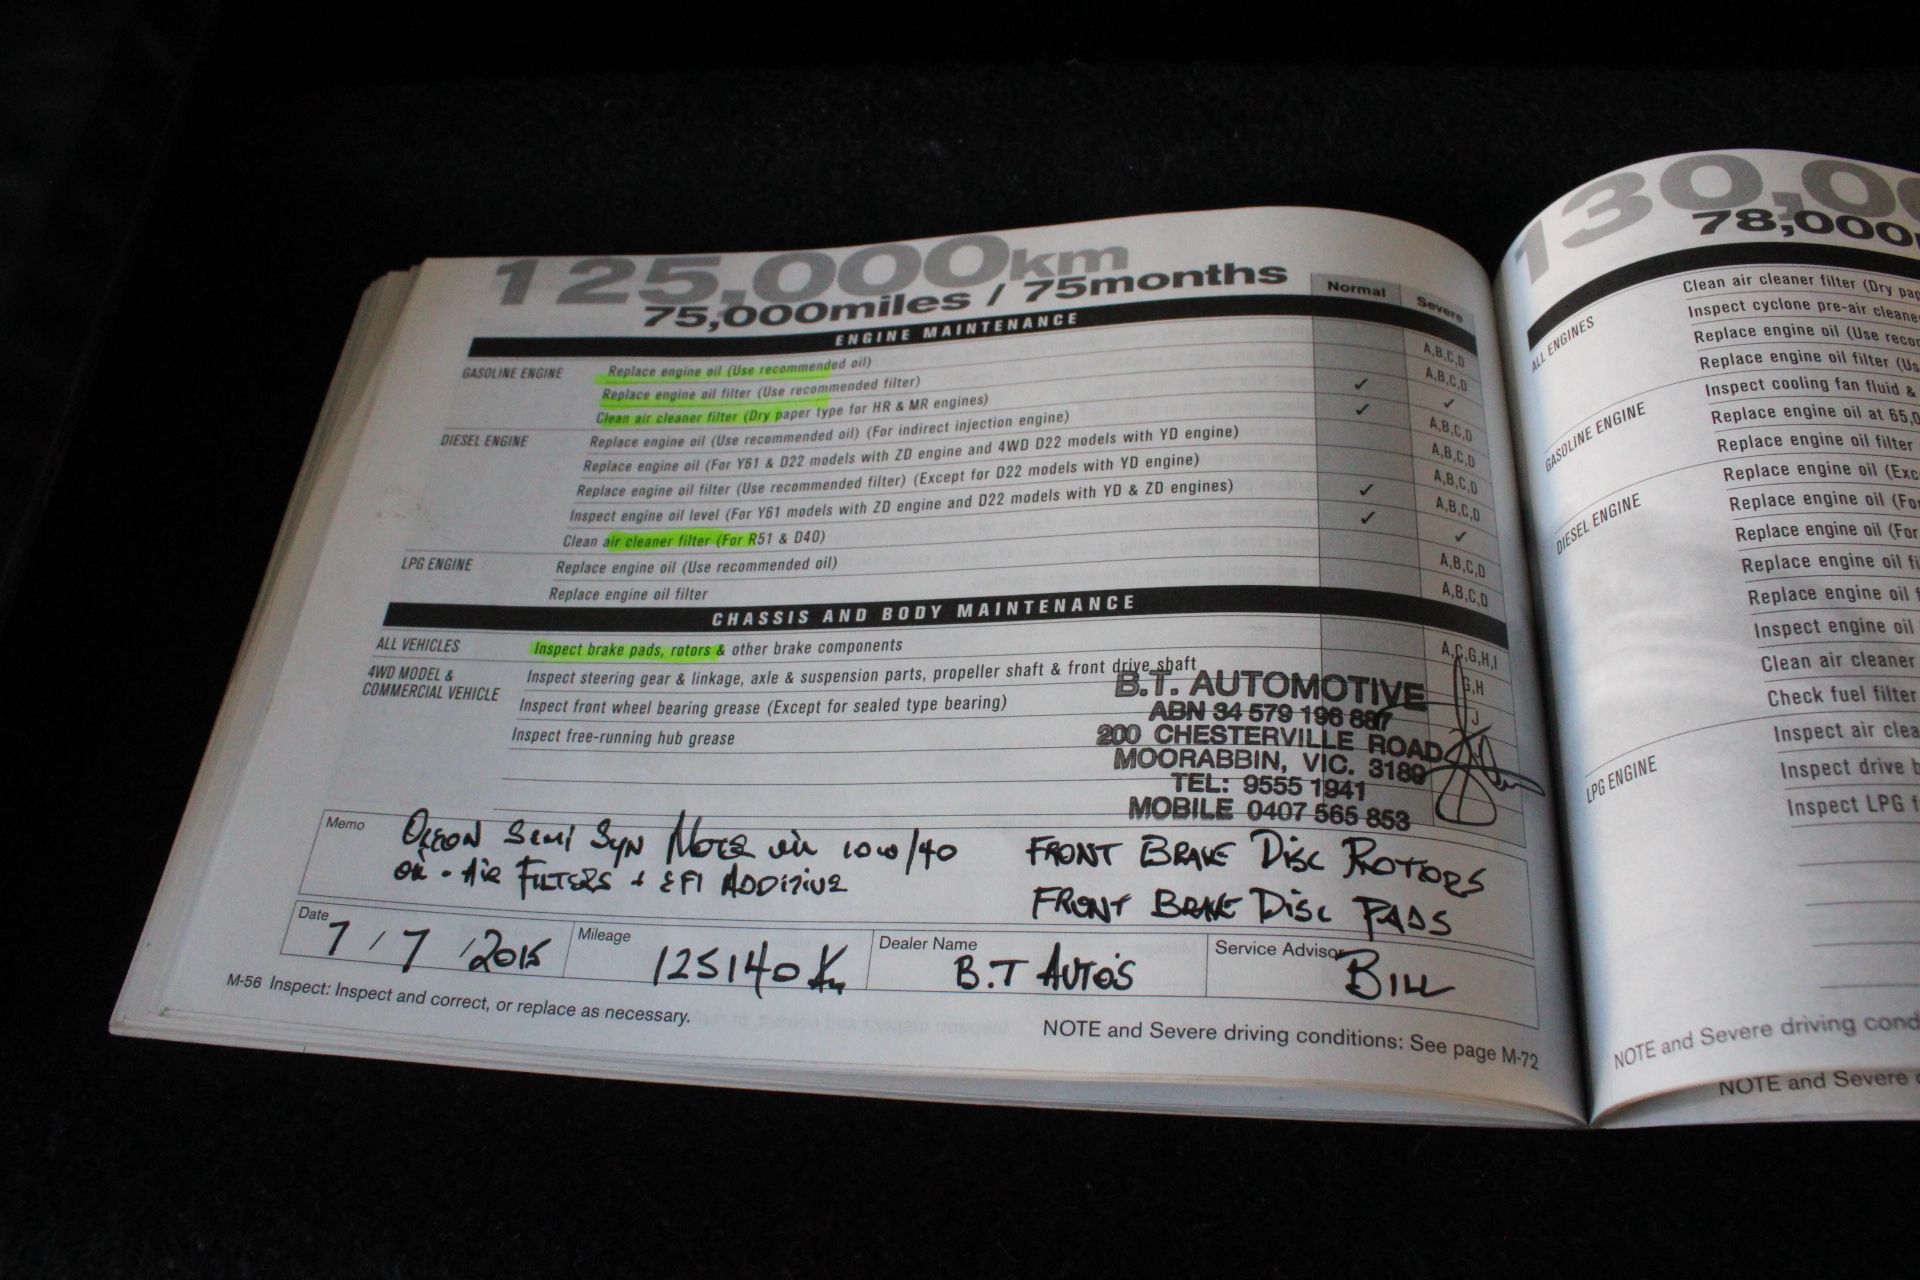 125,000km
75,000miles / 75months
Normal Severe
ENGINE MAINTENANCE
GASOLINE ENGINE Replace engine oil (Use recommended oil) A,B,C,D
Replace engine oil filter (Use recommended filter) A,B,C,D
Clean air cleaner filter (Dry paper type for HR & MR engines) ✓ ✓
DIESEL ENGINE Replace engine oil (Use recommended oil) (For indirect injection engine) ✓ A,B,C,D
Replace engine oil (For Y61 & D22 models with ZD engine and 4WD D22 models with YD engine) A,B,C,D
Replace engine oil filter (Use recommended filter) (Except for D22 models with YD engine) A,B,C,D
Inspect engine oil level (For Y61 models with ZD engine and D22 models with YD & ZD engines) ✓ A,B,C,D
Clean air cleaner filter (For R51 & D40) ✓ ✓
LPG ENGINE Replace engine oil (Use recommended oil) A,B,C,D
Replace engine oil filter A,B,C,D
CHASSIS AND BODY MAINTENANCE
ALL VEHICLES Inspect brake pads, rotors & other brake components A,C,G,H,I
4WD MODEL & COMMERCIAL VEHICLE Inspect steering gear & linkage, axle & suspension parts, propeller shaft & front drive shaft G,H
Inspect front wheel bearing grease (Except for sealed type bearing) J
Inspect free-running hub grease
B.T. AUTOMOTIVE
ABN 34 579 196 887
200 CHESTERVILLE ROAD
MOORABBIN, VIC. 3189
TEL: 9555 1941
MOBILE 0407 565 853
Memo
SEMI SYN 10W/40
OIL - AIR FILTERS + EFI ADDITIVE
FRONT BRAKE DISC ROTORS
FRONT BRAKE DISC PADS
Date 7/7/2015
Mileage 125140 Km
Dealer Name B.T AUTO'S
Service Advisor BILL
M-56 Inspect: Inspect and correct, or replace as necessary.
NOTE and Severe driving conditions: See page M-72
130,00
78,000
ALL ENGINES Clean air cleaner filter (Dry pap
Inspect cyclone pre-air cleane
Replace engine oil (Use recor
Replace engine oil filter (Us
GASOLINE ENGINE Inspect cooling fan fluid &
Replace engine oil at 65,0
Replace engine oil filter
DIESEL ENGINE Replace engine oil (Exc
Replace engine oil (Fo
Replace engine oil (For
Replace engine oil fi
Replace engine oil f
Inspect engine oil
Clean air cleaner
Check fuel filter
LPG ENGINE Inspect air clea
Inspect drive b
Inspect LPG f
NOTE and Severe driving cond
NOTE and Severe